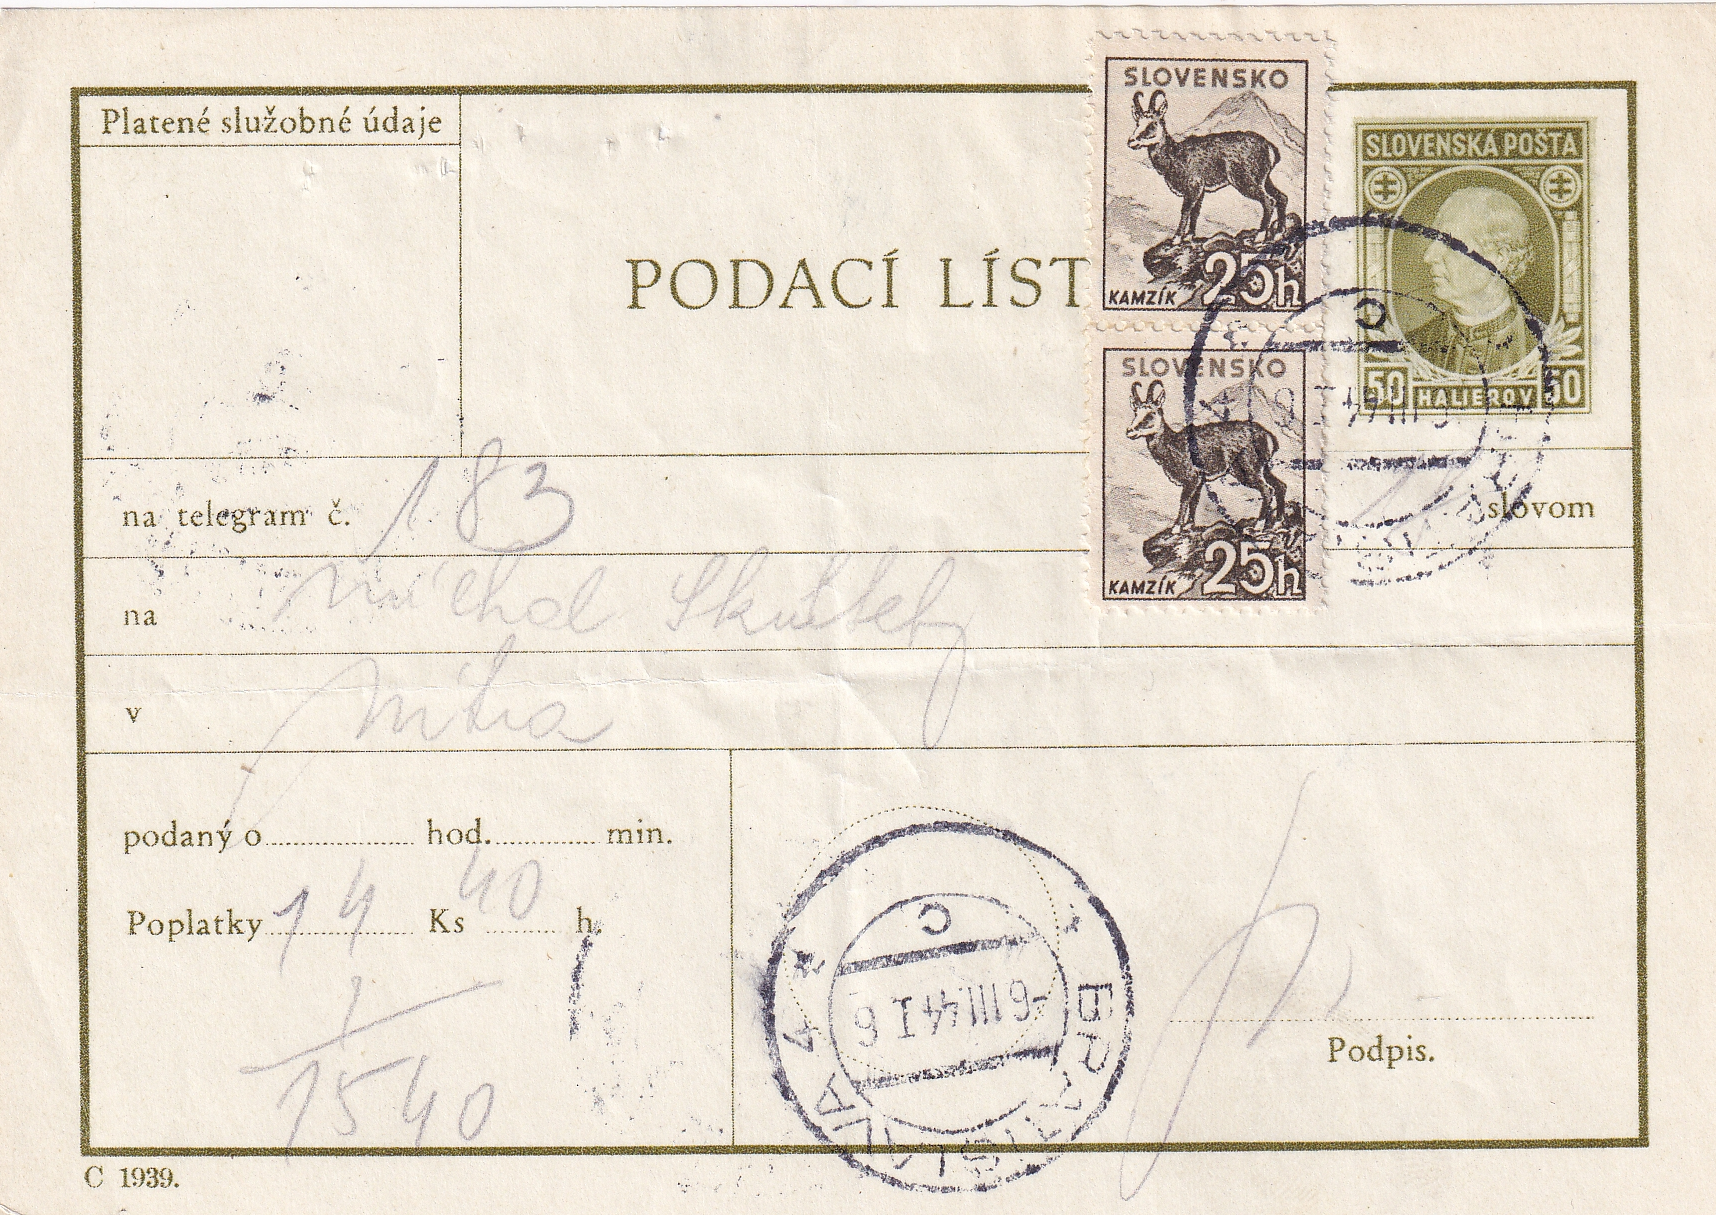 Platené služobné údaje
SLOVENSKO
KAMZÍK 25h
SLOVENSKÁ POŠTA
50 HALIEROV 50
PODACÍ LÍST
SLOVENSKO
KAMZÍK 25h
na telegram č. 183 slovom
na Michal
v Nitra
podaný o hod. min.
Poplatky 14 Ks 40 h.
1
15 40
C
-6.III.44 I 6
BRATISLAVA 4
Podpis.
C 1939.